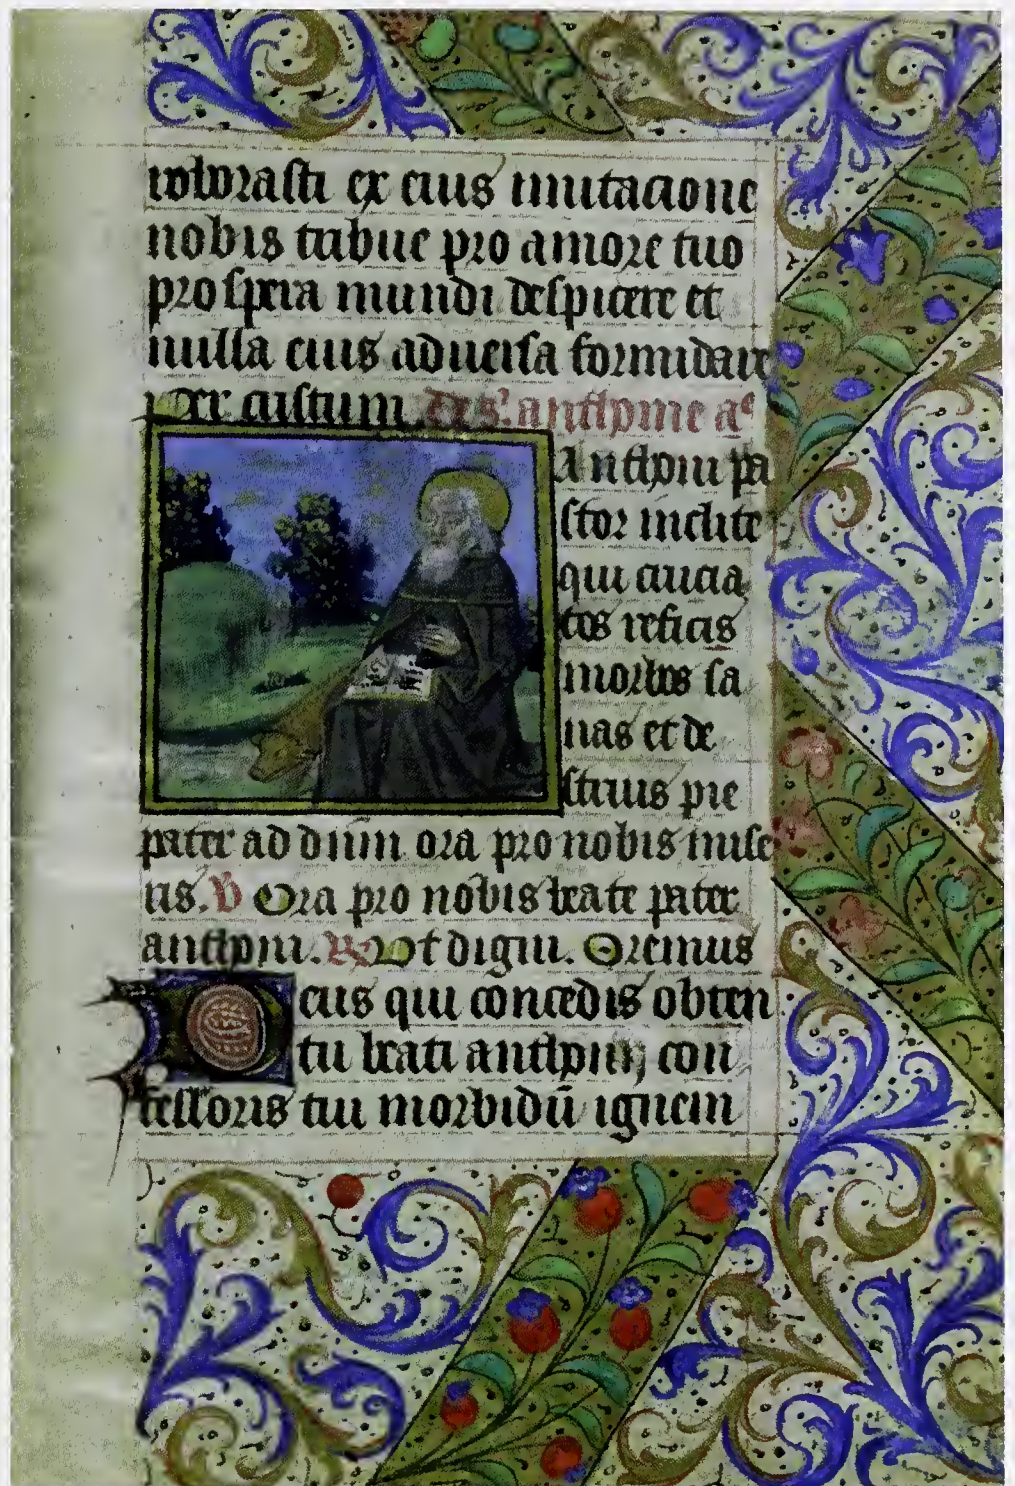 roborasti ex eius imitacione
nobis tribue pro amore tuo
prospera mundi despicere et
nulla eius aduersa formidare
per cristum. De sͭ. anthonie aᵉ
Anthoni pa
stor inclite
qui crucia
tos reficis
morbos sa
nas et de
struis pie
pater ad dum̄ ora pro nobis mise
ris. V Ora pro nobis beate pater
anthoni. R Vt digni. Oremus
Deus qui concedis obten
tu beati anthonij con
fessoris tui morbidū ignem